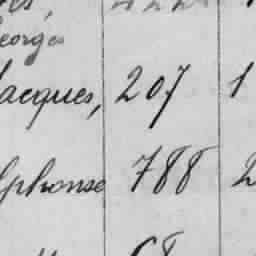 Georges
Jacques, 207 1
lphonse 788 2